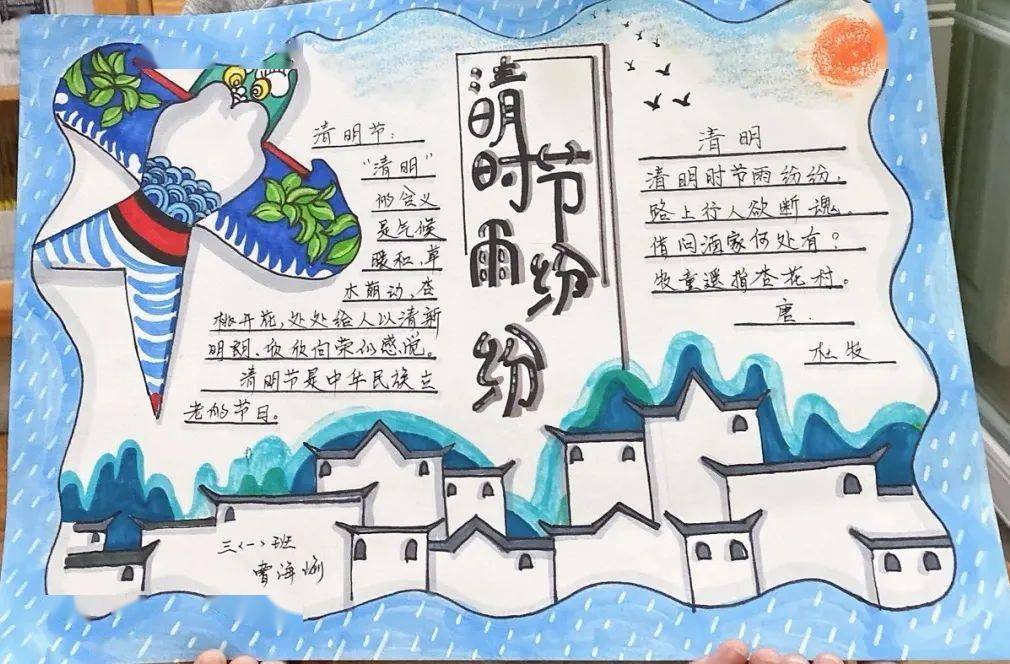 清明节:
"清明"
的含义
是气候
暖和,草
木萌动,杏
桃开花,处处给人以清新
明朗、欣欣向荣的感觉。
清明节是中华民族古
老的节日。
清明
时节
雨纷
纷
清明
清明时节雨纷纷,
路上行人欲断魂。
借问酒家何处有?
牧童遥指杏花村。
唐.
杜牧
三<一>班
海